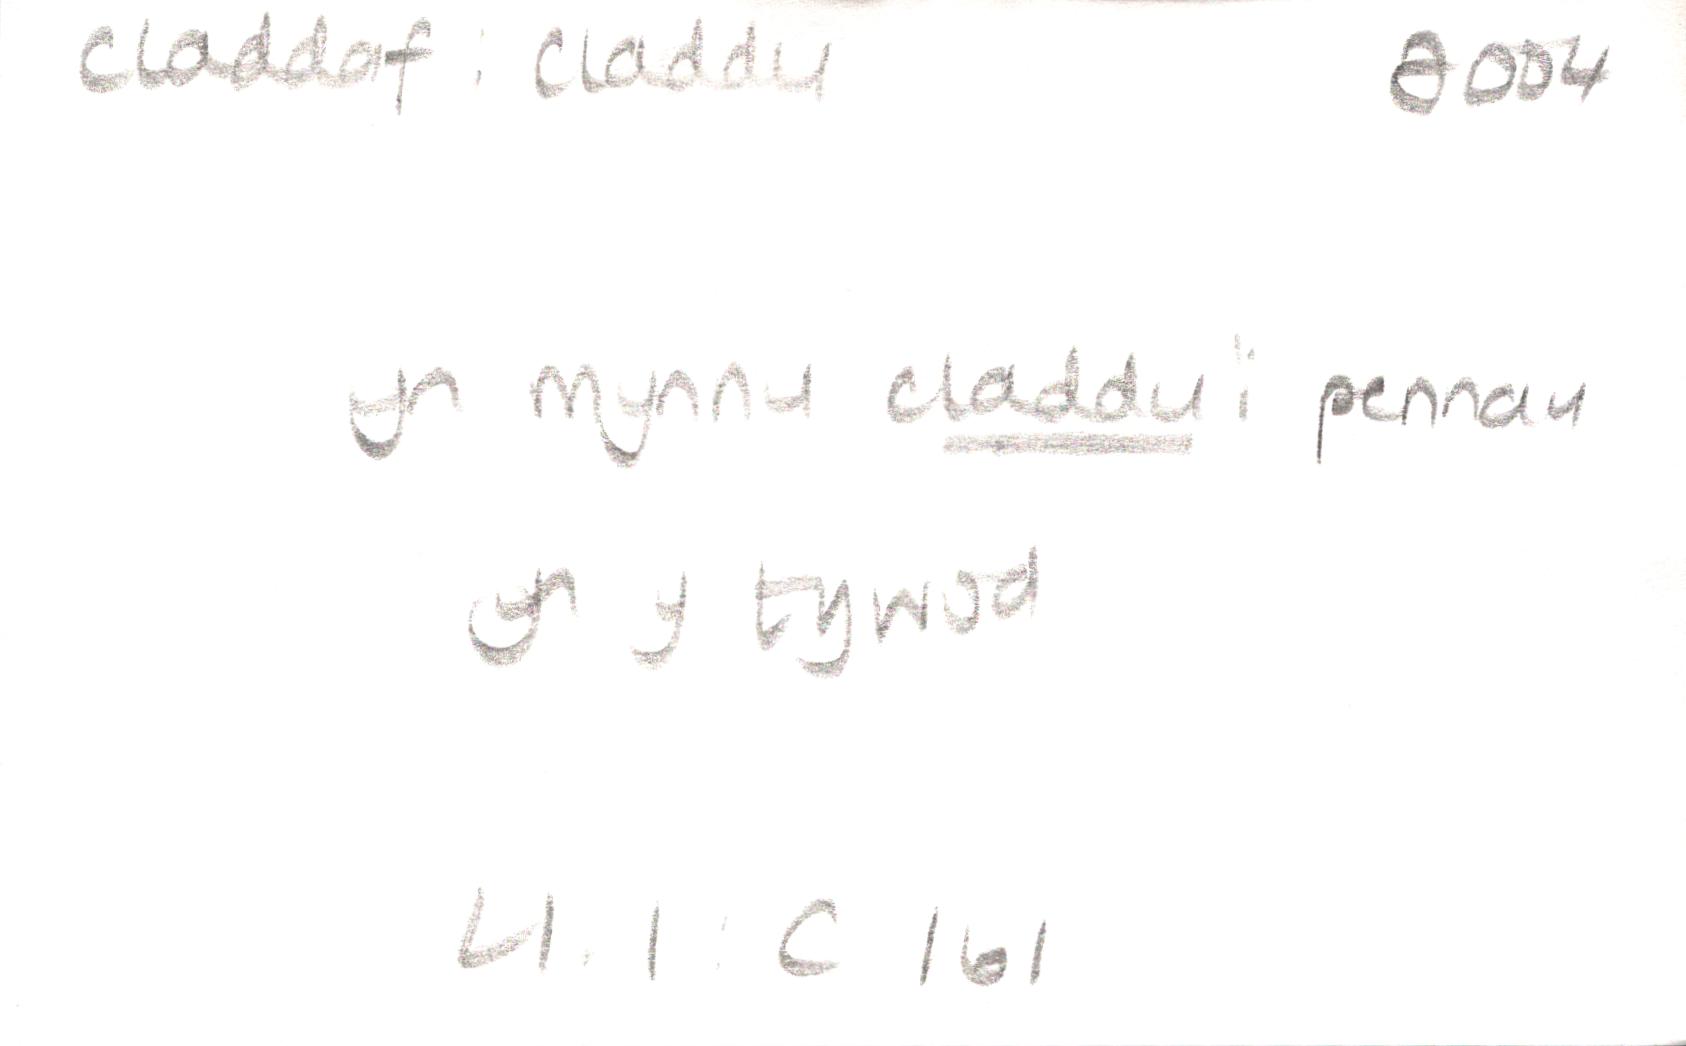 claddaf : claddu 2004
yn mynnu claddu'i pennau
yn y tywod
Ll. 1 : C 161